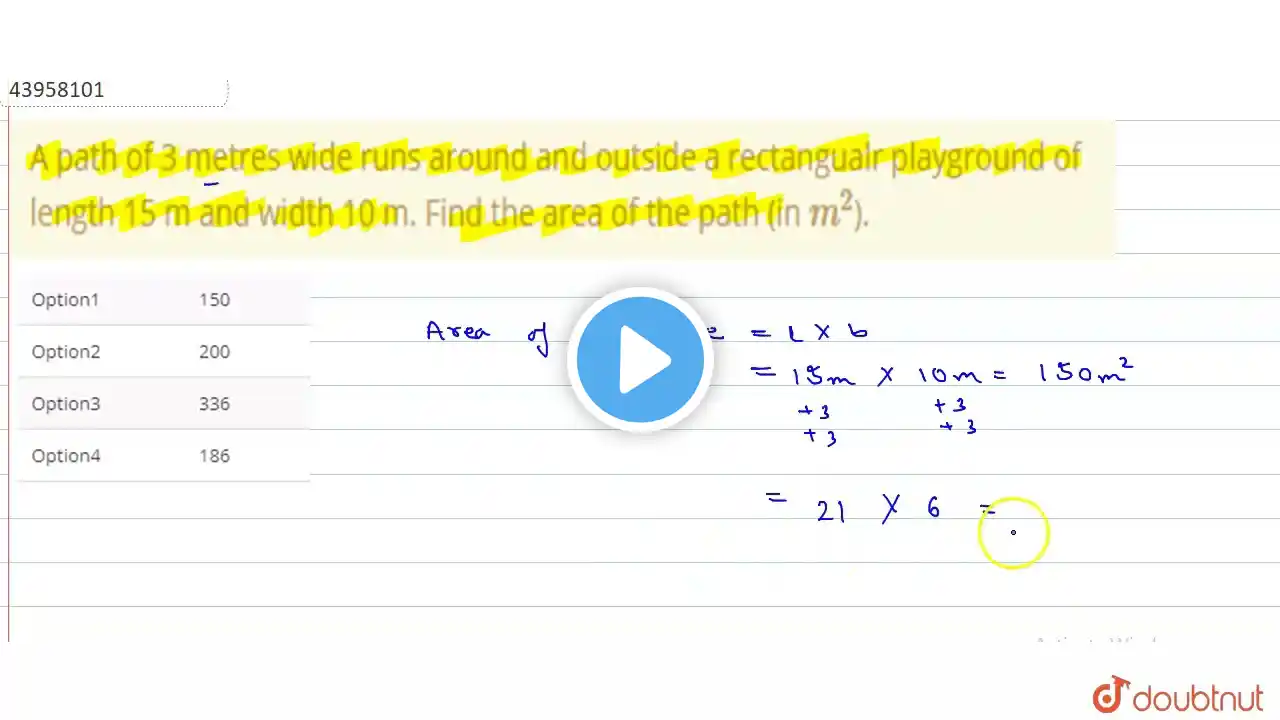 43958101
A path of 3 metres wide runs around and outside a rectangualr playground of
length 15 m and width 10 m. Find the area of the path (in m²).
Option1 150
Option2 200
Option3 336
Option4 186
Area of = L × b
= 15m × 10m = 150m²
+3 +3
+3 +3
= 21 × 6 =
doubtnut